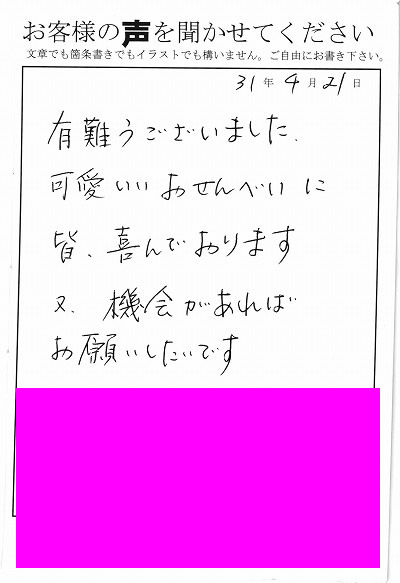 お客様の声を聞かせてください
文章でも箇条書きでもイラストでも構いません。ご自由にお書き下さい。
31年4月21日
有難うございました、
可愛いいおせんべいに
皆、喜んでおります
又、機会があれば
お願いしたいです